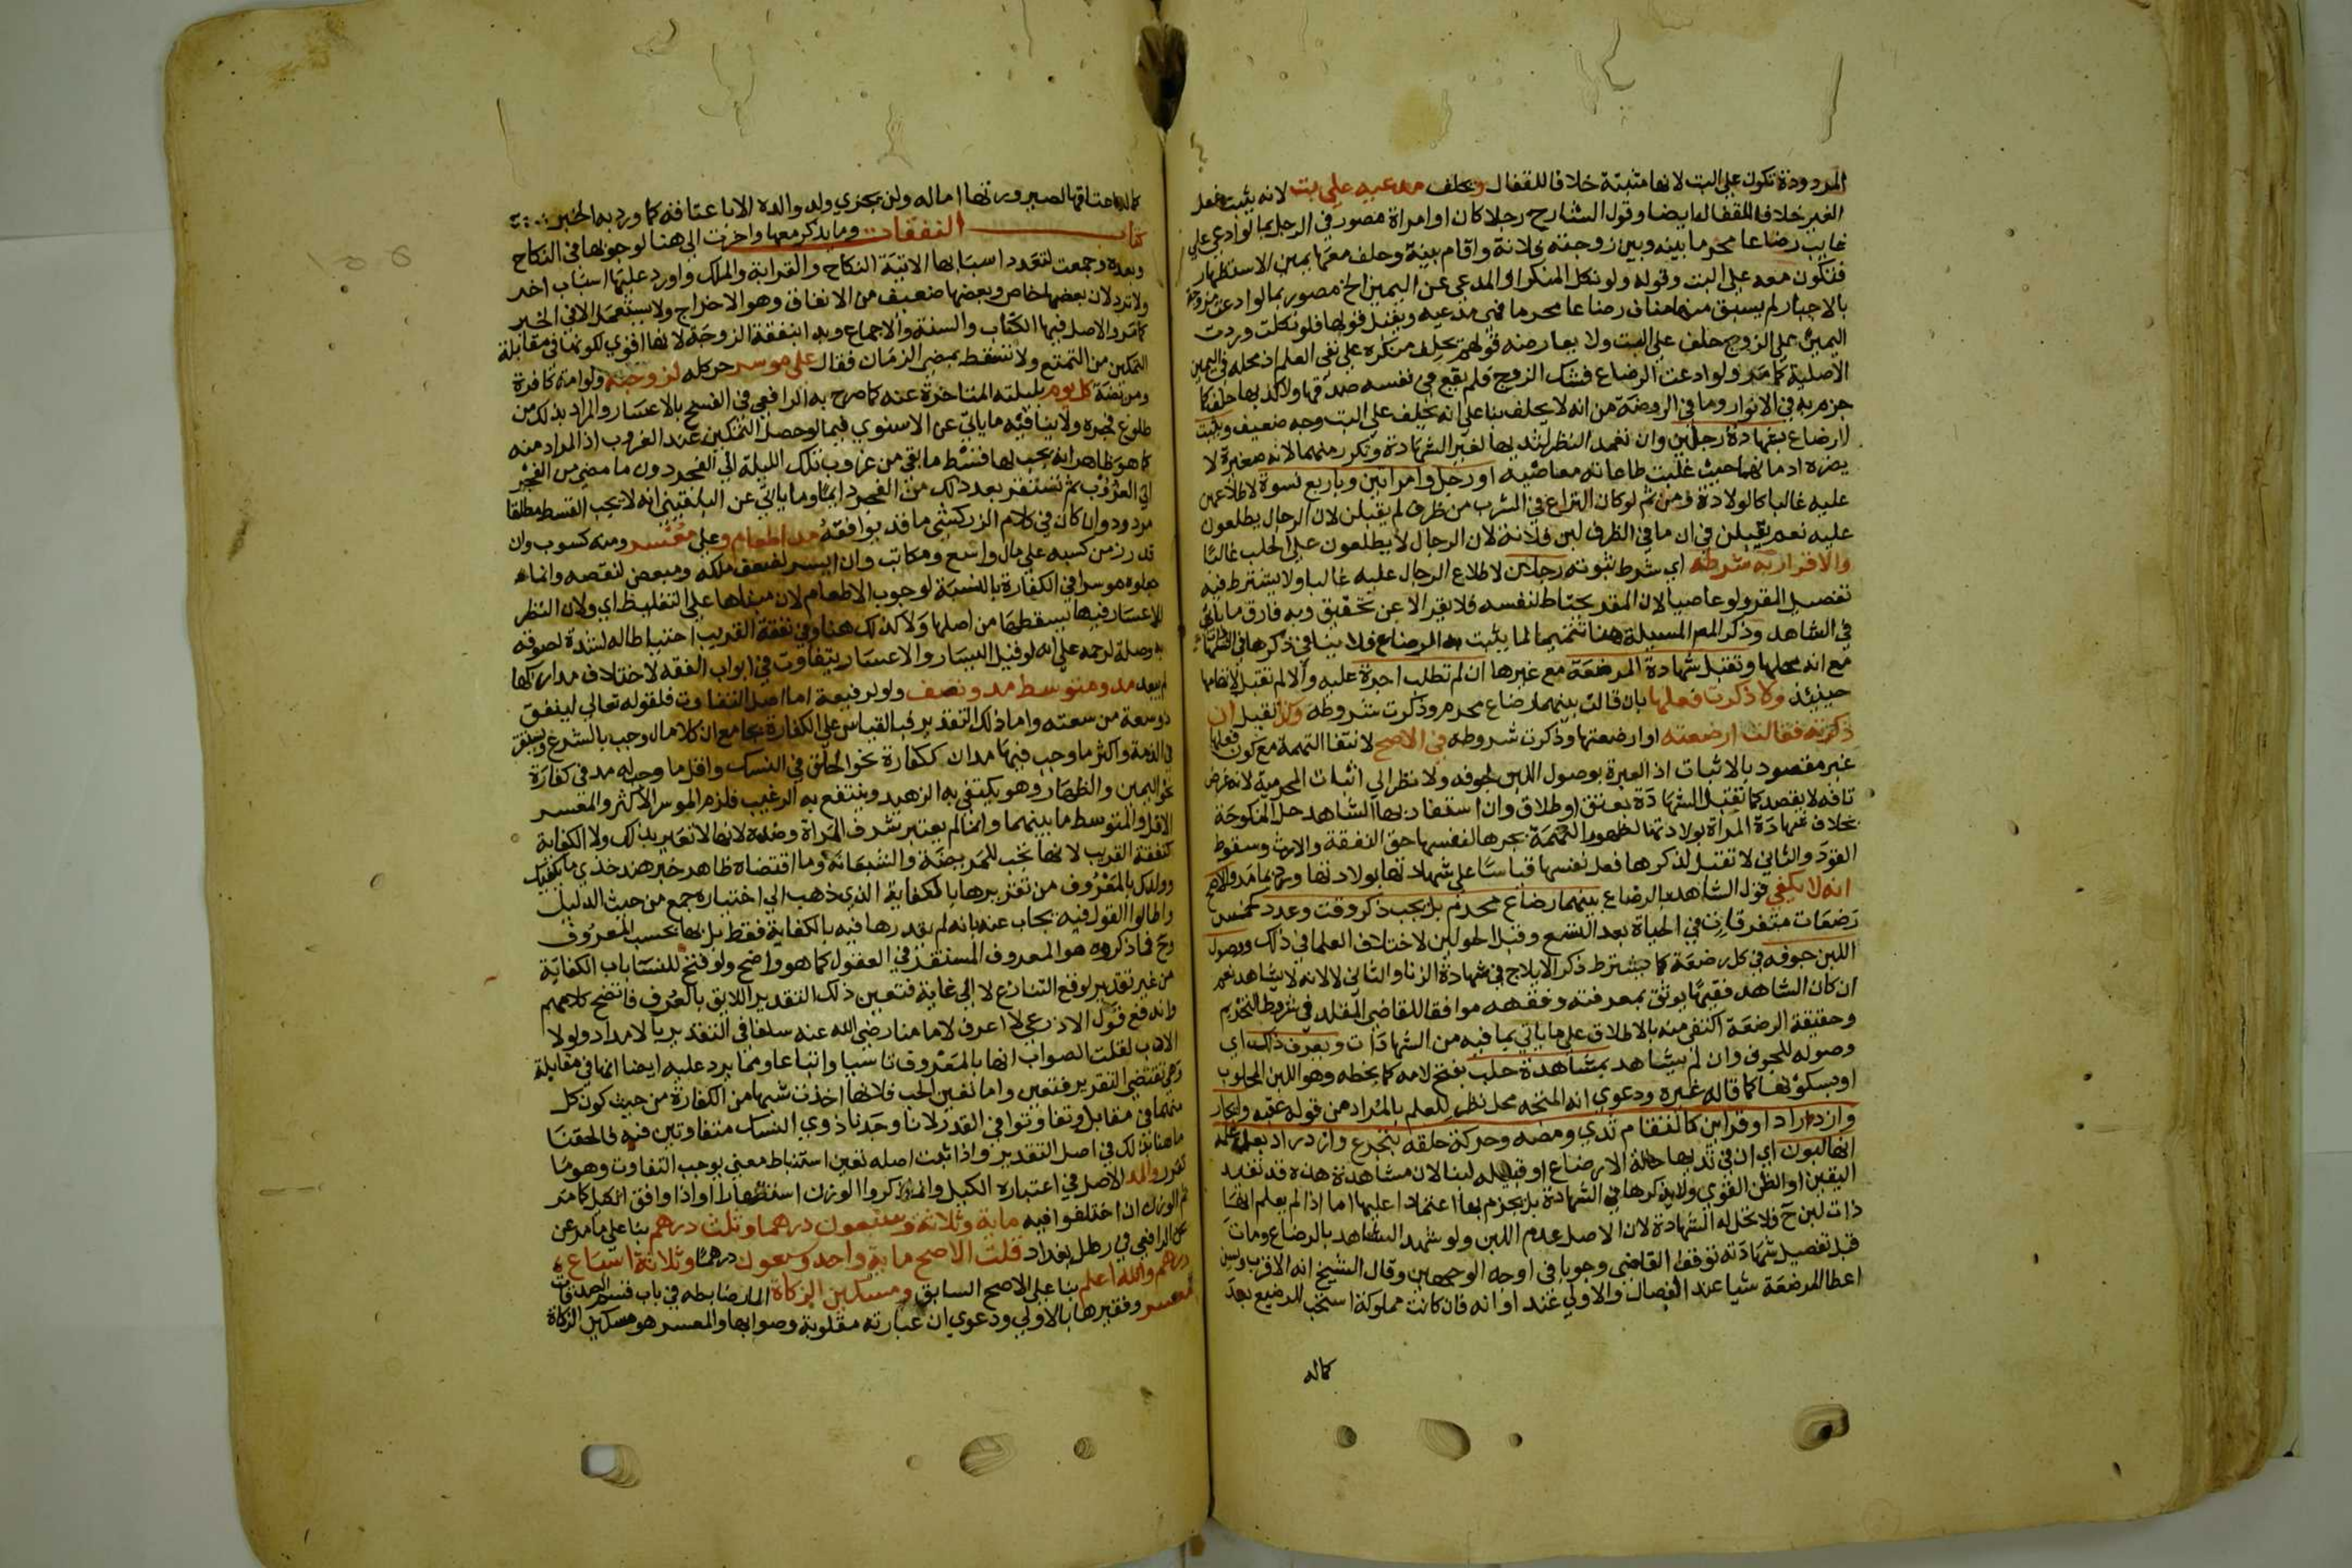 المردودة تكون على البت لانها مثبتة خلافا للقفال ويحلف مدعيه على بت لانه يثبت فعل
الغير خلافا للقفال ايضا وقول الشارح رجلا كان او امراة مصور في الرجل بما لو ادعى على
غايب رضاعا محرما بينه وبين زوجته فلانة واقام بينة وحلف معها يمين الاستظهار
فتكون معه على البت وقوله ولو نكل المنكر او المدعي عن اليمين الخ مصور بما لو ادعت مزوجة
بالاجبار لم يسبق منها مناف رضاعا محرما فهي مدعية ويقبل قولها فلو نكلت وردت
اليمين على الزوج حلف على البت ولا يعارضه قولهم يحلف منكره على نفي العلم اذ محله في اليمين
الاصلية كما مر ولو ادعت الرضاع فشك الزوج فلم يقع في نفسه صدقها ولا كذبها حلف كما
جزم به في الانوار وما في الروضة من انه لا يحلف بناء على انه يحلف على البت وجه ضعيف ويثبت
الرضاع بشهادة رجلين وان تعمد النظر لثديها لغير الشهادة وتكرر منهما لانه صغيرة لا
يضره ادمانها حيث غلبت طاعاته معاصيه او رجل وامراتين وباربع نسوة لاطلاعهن
عليه غالبا كالولادة ومن ثم لو كان النزاع في الشرب من ظرف لم يقبلن لان الرجال يطلعون
عليه نعم يقبلن في ان ما في الظرف لبن فلانة لان الرجال لا يطلعون على الحلب غالبا
والاقرار به شرطه اي شرط ثبوته رجلان لاطلاع الرجال عليه غالبا ولا يشترط فيه
تفصيل المقر ولو عاميا لان المقر يحتاط لنفسه فلا يقر الا عن تحقيق وبه فارق ما ياتي
في الشاهد وذكر المص المسيلة هنا تتميما لما يثبت به الرضاع فلا ينافي ذكرها في الشهادات
مع انه محلها وتقبل شهادة المرضعة مع غيرها ان لم تطلب اجرة عليه والا لم تقبل لاتهامها
حينيذ ولا ذكرت فعلها بان قالت بينهما رضاع محرم وذكرت شروطه وكذا تقبل ان
ذكرته فقالت ارضعته او ارضعتها وذكرت شروطه في الاصح لانتفا التهمة مع كون فعلها
غير مقصود بالاثبات اذ العبرة بوصول اللبن لجوفه ولا نظر الى اثبات المحرمية لانه غرض
تافه لا يقصد كما تقبل الشهادة بعتق او طلاق وان استفاد بها الشاهد حل المنكوحة
بخلاف شهادة المراة بولادتها لظهور التهمة بجرها لنفسها حق النفقة والارث وسقوط
القود والثاني لا تقبل لذكرها فعل نفسها قياسا على شهادتها بولادتها ورد بما مر والاصح
انه لا يكفي قول الشاهد بالرضاع بينهما رضاع محرم بل يجب ذكر وقت وعدد كخمس
رضعات متفرقات في الحياة بعد التسع وقبل الحولين لاختلاف العلما في ذلك ووصول
اللبن جوفه في كل رضعة كما يشترط ذكر الايلاج في شهادة الزنا والثاني لا لانه لا يشاهد نعم
ان كان الشاهد فقيها يوثق بمعرفته وفقهه موافقا للقاضي المقلد في شروط التحريم
وحقيقة الرضعة اكتفي منه بالاطلاق على ما ياتي بما فيه من الشهادات ويعرف ذلك اي
وصوله للجوف وان لم يشاهد بمشاهدة حلب بفتح لامه كما بخطه وهو اللبن المحلوب
او بسكونها كما قاله غيره ودعوى انه المتجه محل نظر للعلم بالمراد من قوله عقبه وايجار
وازدراد او قراين كالتقام ثدي ومصه وحركة حلقه بتجرع وازدراد بعد علمه
انها لبون اي ان في ثديها حالة الارضاع او قبيله لبنا لان مشاهدة هذه قد تفيد
اليقين او الظن القوي ولا يذكرها في الشهادة بل يجزم بها اعتمادا عليها اما اذا لم يعلم انها
ذات لبن ح فلا تحل له الشهادة لان الاصل عدم اللبن ولو شهد الشاهد بالرضاع ومات
قبل تفصيل شهادته توقف القاضي وجوبا في اوجه الوجهين وقال الشيخ انه الاقرب ويسن
اعطا المرضعة شيا عند الفصال والاولى عند اوانه فان كانت مملوكة استحب للرضيع بعد
كماله
كماله اعتاقها لصيرورتها اما له ولن يجزي ولد والده الا باعتاقه كما ورد به الخبر
كتاب النفقات وما يذكر معها واخرت الى هنا لوجوبها في النكاح
وبعده وجمعت لتعدد اسبابها الاتية النكاح والقرابة والملك واورد عليها اسباب اخر
ولا ترد لان بعضها خاص وبعضها ضعيف من الانفاق وهو الاخراج ولا يستعمل الا في الخير
كما مر والاصل فيها الكتاب والسنة والاجماع وبدا بنفقة الزوجة لانها اقوى لكونها في مقابلة
التمكين من التمتع ولا تسقط بمضي الزمان فقال على موسر حر كله لزوجته ولو امة كافرة
ومريضة كل يوم بليلته المتاخرة عنه كما صرح به الرافعي في الفسخ بالاعسار والمراد بذلك من
طلوع فجره ولا ينافيه ما ياتي عن الاسنوي فيما لو حصل التمكين عند الغروب اذ المراد منه
كما هو ظاهر انه يجب لها قسط ما بقي من غروب تلك الليلة الى الفجر دون ما مضى من الفجر
الى الغروب ثم تستقر بعد ذلك من الفجر دايما وما ياتي عن البلقيني انه لا يجب القسط مطلقا
مردود وان كان في كلام الزركشي ما قد يوافقه مدا طعام وعلى معسر ومنه كسوب وان
قدر زمن كسبه على مال واسع ومكاتب وان ايسر لضعف ملكه ومبعض لنقصه وانما
جعلوه موسرا في الكفارة بالنسبة لوجوب الاطعام لان مبناها على التغليظ اي ولان النظر
للاعسار فيها يسقطها من اصلها ولا كذلك هنا وفي نفقة القريب احتياطا له لشدة لصوقه
به وصلة لرحمه على انه لو قيل اليسار والاعسار يتفاوت في ابواب الفقه لاختلاف مداركها
لم يبعد مد ومتوسط مد ونصف ولو لرفيعة اما اصل التفاوت فلقوله تعالى لينفق
ذو سعة من سعته واما ذلك التقدير فبالقياس على الكفارة بجامع ان كلا مال وجب بالشرع ويستقر
في الذمة واكثر ما وجب فيها مدان ككفارة نحو الحلق في النسك واقل ما وجب له مد في كفارة
نحو اليمين والظهار وهو يكتفي به الزهيد وينتفع به الرغيب فلزم الموسر الاكثر والمعسر
الاقل والمتوسط ما بينهما وانما لم يعتبر شرف المراة وضده لانها لا تعير بذلك ولا الكفاية
كنفقة القريب لانها تجب للمريضة والشبعانة وما اقتضاه ظاهر خبر هند خذي ما يكفيك
وولدك بالمعروف من تقديرها بالكفاية الذي ذهب الى اختياره جمع من حيث الدليل
واطالوا القول فيه يجاب عنه بانه لم يقدرها فيه بالكفاية فقط بل بها بحسب المعروف
وح فما ذكروه هو المعروف المستقر في العقول كما هو واضح ولو فتح للنسا باب الكفاية
من غير تقدير لوقع التنازع لا الى غاية فتعين ذلك التقدير اللايق بالعرف فاتضح كلامهم
واندفع قول الاذرعي لا اعرف لامامنا رضي الله عنه سلفا في التقدير بالامداد ولولا
الادب لقلت الصواب انها بالمعروف تاسيا واتباعا ومما يرد عليه ايضا انها في مقابلة
وهي تقتضي التقدير فتعين واما تعين الحب فلانها اخذت شبها من الكفارة من حيث كون كل
منهما في مقابل وتفاوتوا في القدر لانا وجدنا ذوي النسك متفاوتين فيه فالحقنا
ما هنا بذلك في اصل التقدير واذا ثبت اصله تعين استنباط معنى يوجب التفاوت وهو ما
تقرر والمد الاصل في اعتباره الكيل وانما ذكروا الوزن استظهارا او اذا وافق الكيل كما مر
ثم الوزن ان اختلفوا فيه ماية وثلاثة وسبعون درهما وثلث درهم بناء على ما مر عن
الرافعي في رطل بغداد قلت الاصح ماية واحد وسبعون درهما وثلاثة اسباع
درهم والله اعلم بناء على الاصح السابق ومسكين الزكاة المار ضابطه في باب قسم الصدقات
معسر وفقيرها بالاولى ودعوى ان عبارته مقلوبة وصوابها والمعسر هو مسكين الزكاة